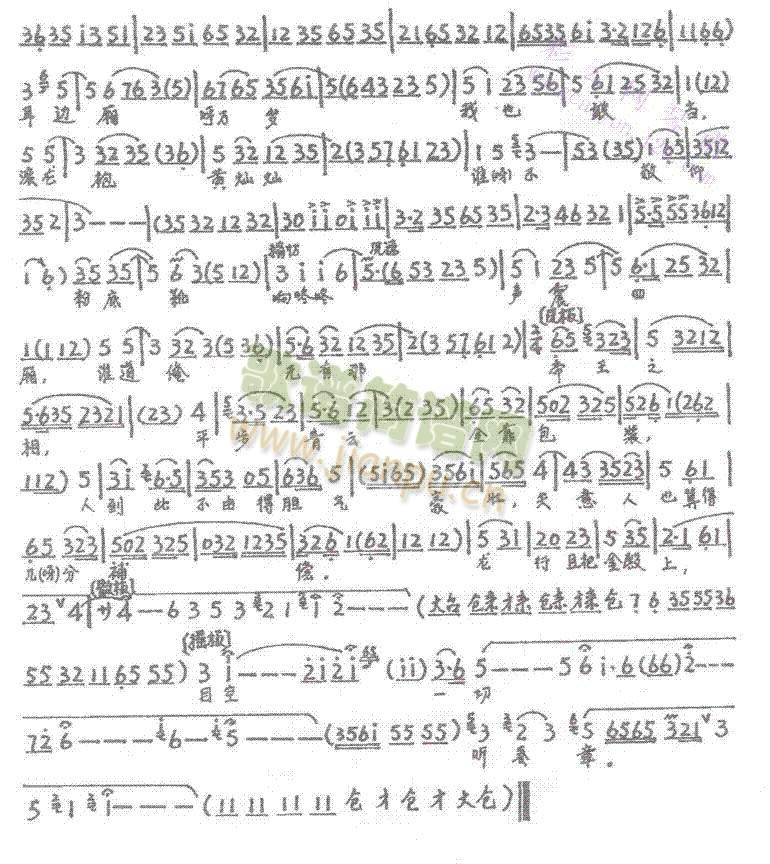 3635 i351 | 235i 6532 | 1235 6535 | 2165 3212 | 6535 6i 3·2 126 | 1166)
3 5 | 5 6 763 (5) | 6765 356i | 5 (643235) | 5 i 2356 | 5 612532 | 1 (12)
耳边厢 呼万岁 我也敢当,
5 5 | 3 3235 (36) | 5 32 1235 | 2 (3576123) | 1 5 3 — | 53 (35) 1 65 | 3512
滚龙袍 黄灿灿 谁(呀)不 敬仰
352 | 3 - - - | (35321232 | 30 ii 0i ii | 3·2 356535 | 2·3 46321 | 5·5 55 3612 |
i 6) 35 35 | 5 6 3 (5 12) | 3 i i 6 | 5·(6 53 235) | 5 i 23 5 | 5 6·1 2532 |
粉底靴 响咚咚 声震四
1 (1 12) 5 5 | 3 323 (536) | 5·6 32 1235 | 2 (3 57612) | 65 323 | 5 3212 |
厢, 谁道俺 无有那 帝王之
5·635 2321 | (23) 4 | 3·5 23 | 5·6 12 | 3 (235) | 65 32 | 502 325 | 526 1 (262 |
相, 平步青云 全靠包装,
112) 5 | 3i 6·5 | 353 05 | 636 5 | (5i65) 356i | 565 4 | 43 3523 | 5 61 |
人到此不由得胆气豪壮, 失意人也算得
65 323 | 502 325 | 032 1235 | 326 1 (62 | 12 12) | 5 31 | 20 23 | 5 35 | 2·1 61 |
几(呀)分补偿。 龙行且把金殿上,
23 4 | 4 — — 6 3 5 3 2 1 1 2 — — — (大台 仓来才来 仓来才来 仓 76 355536
55 32 11 65 55) 3 i — — — 2i2i (ii) 3·6 5 — — — 5 6 i·6 (66) 2 — — —
[摇板] 目空一切
72 6 — — — 6 — 5 — — — (356i 55 55) 3 2 3 5 6565 321 3
听奏章。
5 1 1 — — — — (11 11 11 11 仓才仓才大仓)
www.jianpu.cn